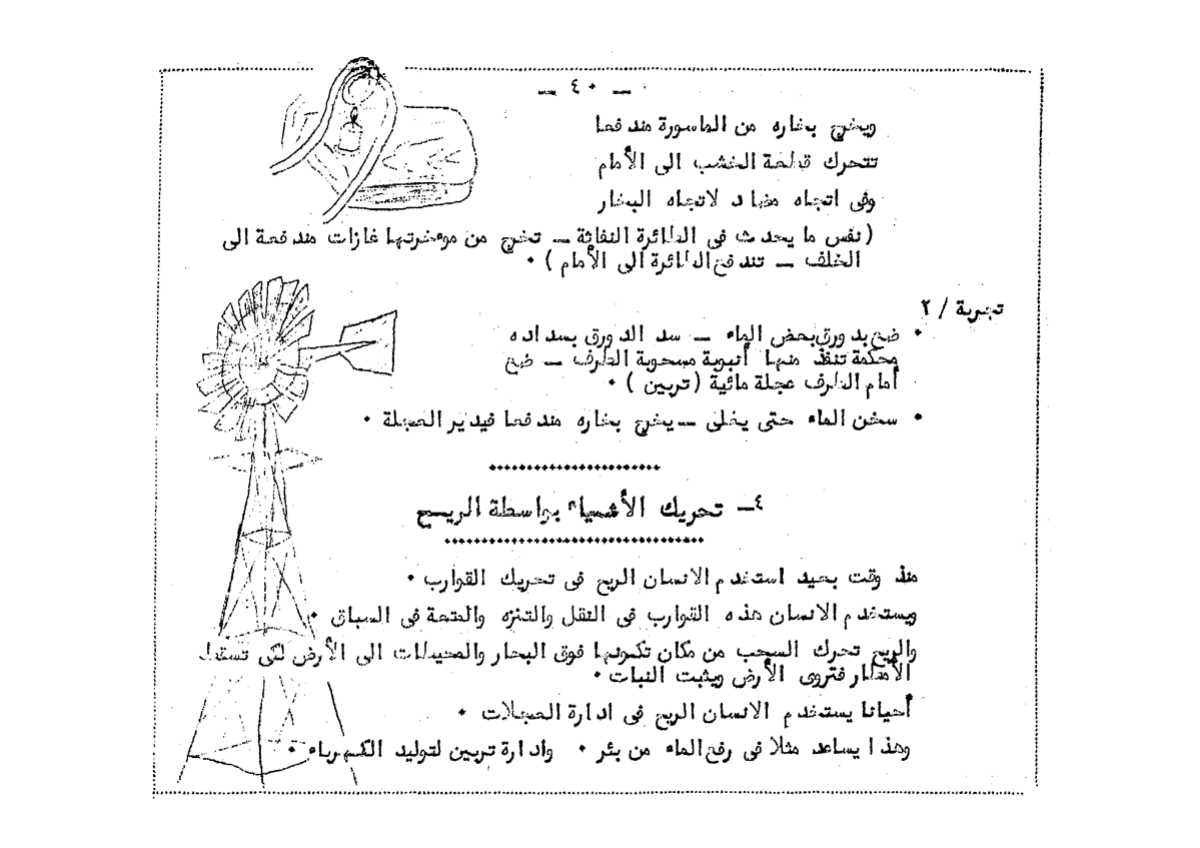 — ٤٠ —
ويخرج بخاره من الماسورة مندفعا
تتحرك قطعة الخشب الى الأمام
وفى اتجاه مضاد لاتجاه البخار
(نفس ما يحدث فى الطائرة النفاثة — تخرج من مؤخرتها غازات مندفعة الى
الخلف — تندفع الطائرة الى الأمام) •
تجربة / ٢
• ضع بدورق بعض الماء — سد الدورق بسداده
محكمة تنفذ منها أنبوبة مسحوبة الطرف — ضع
أمام الطرف عجلة مائية (تربين) •
• سخن الماء حتى يغلى — يخرج بخاره مندفعا فيدير العجلة •
٤— تحريك الأشياء بواسطة الريح
منذ وقت بعيد استخدم الانسان الريح فى تحريك القوارب •
ويستخدم الانسان هذه القوارب فى النقل والتنزه والمتعة فى السباق •
والريح تحرك السحب من مكان تكونها فوق البحار والمحيطات الى الأرض لكى تسقط
الأمطار فتروى الأرض ويثبت النبات •
أحيانا يستخدم الانسان الريح فى ادارة العجلات •
وهذا يساعد مثلا فى رفع الماء من بئر • وادارة تربين لتوليد الكهرباء •